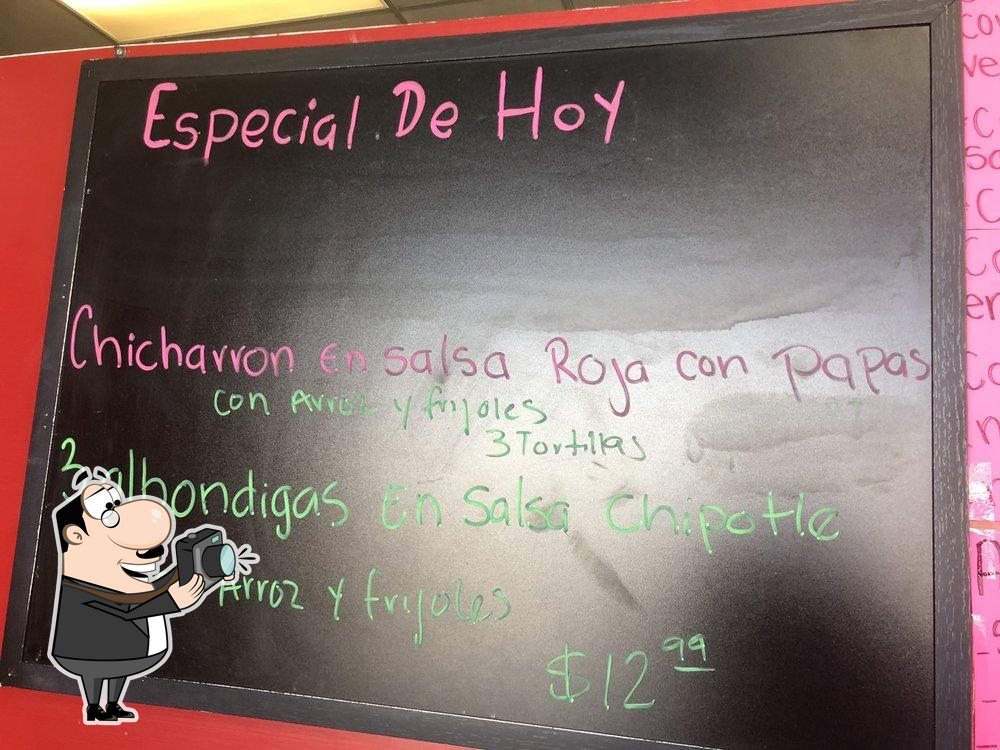 Especial De Hoy
Chicharron En salsa Roja con papas
con Arroz y frijoles
3 Tortillas
3 albondigas En Salsa Chipotle
Arroz y frijoles
$12.99